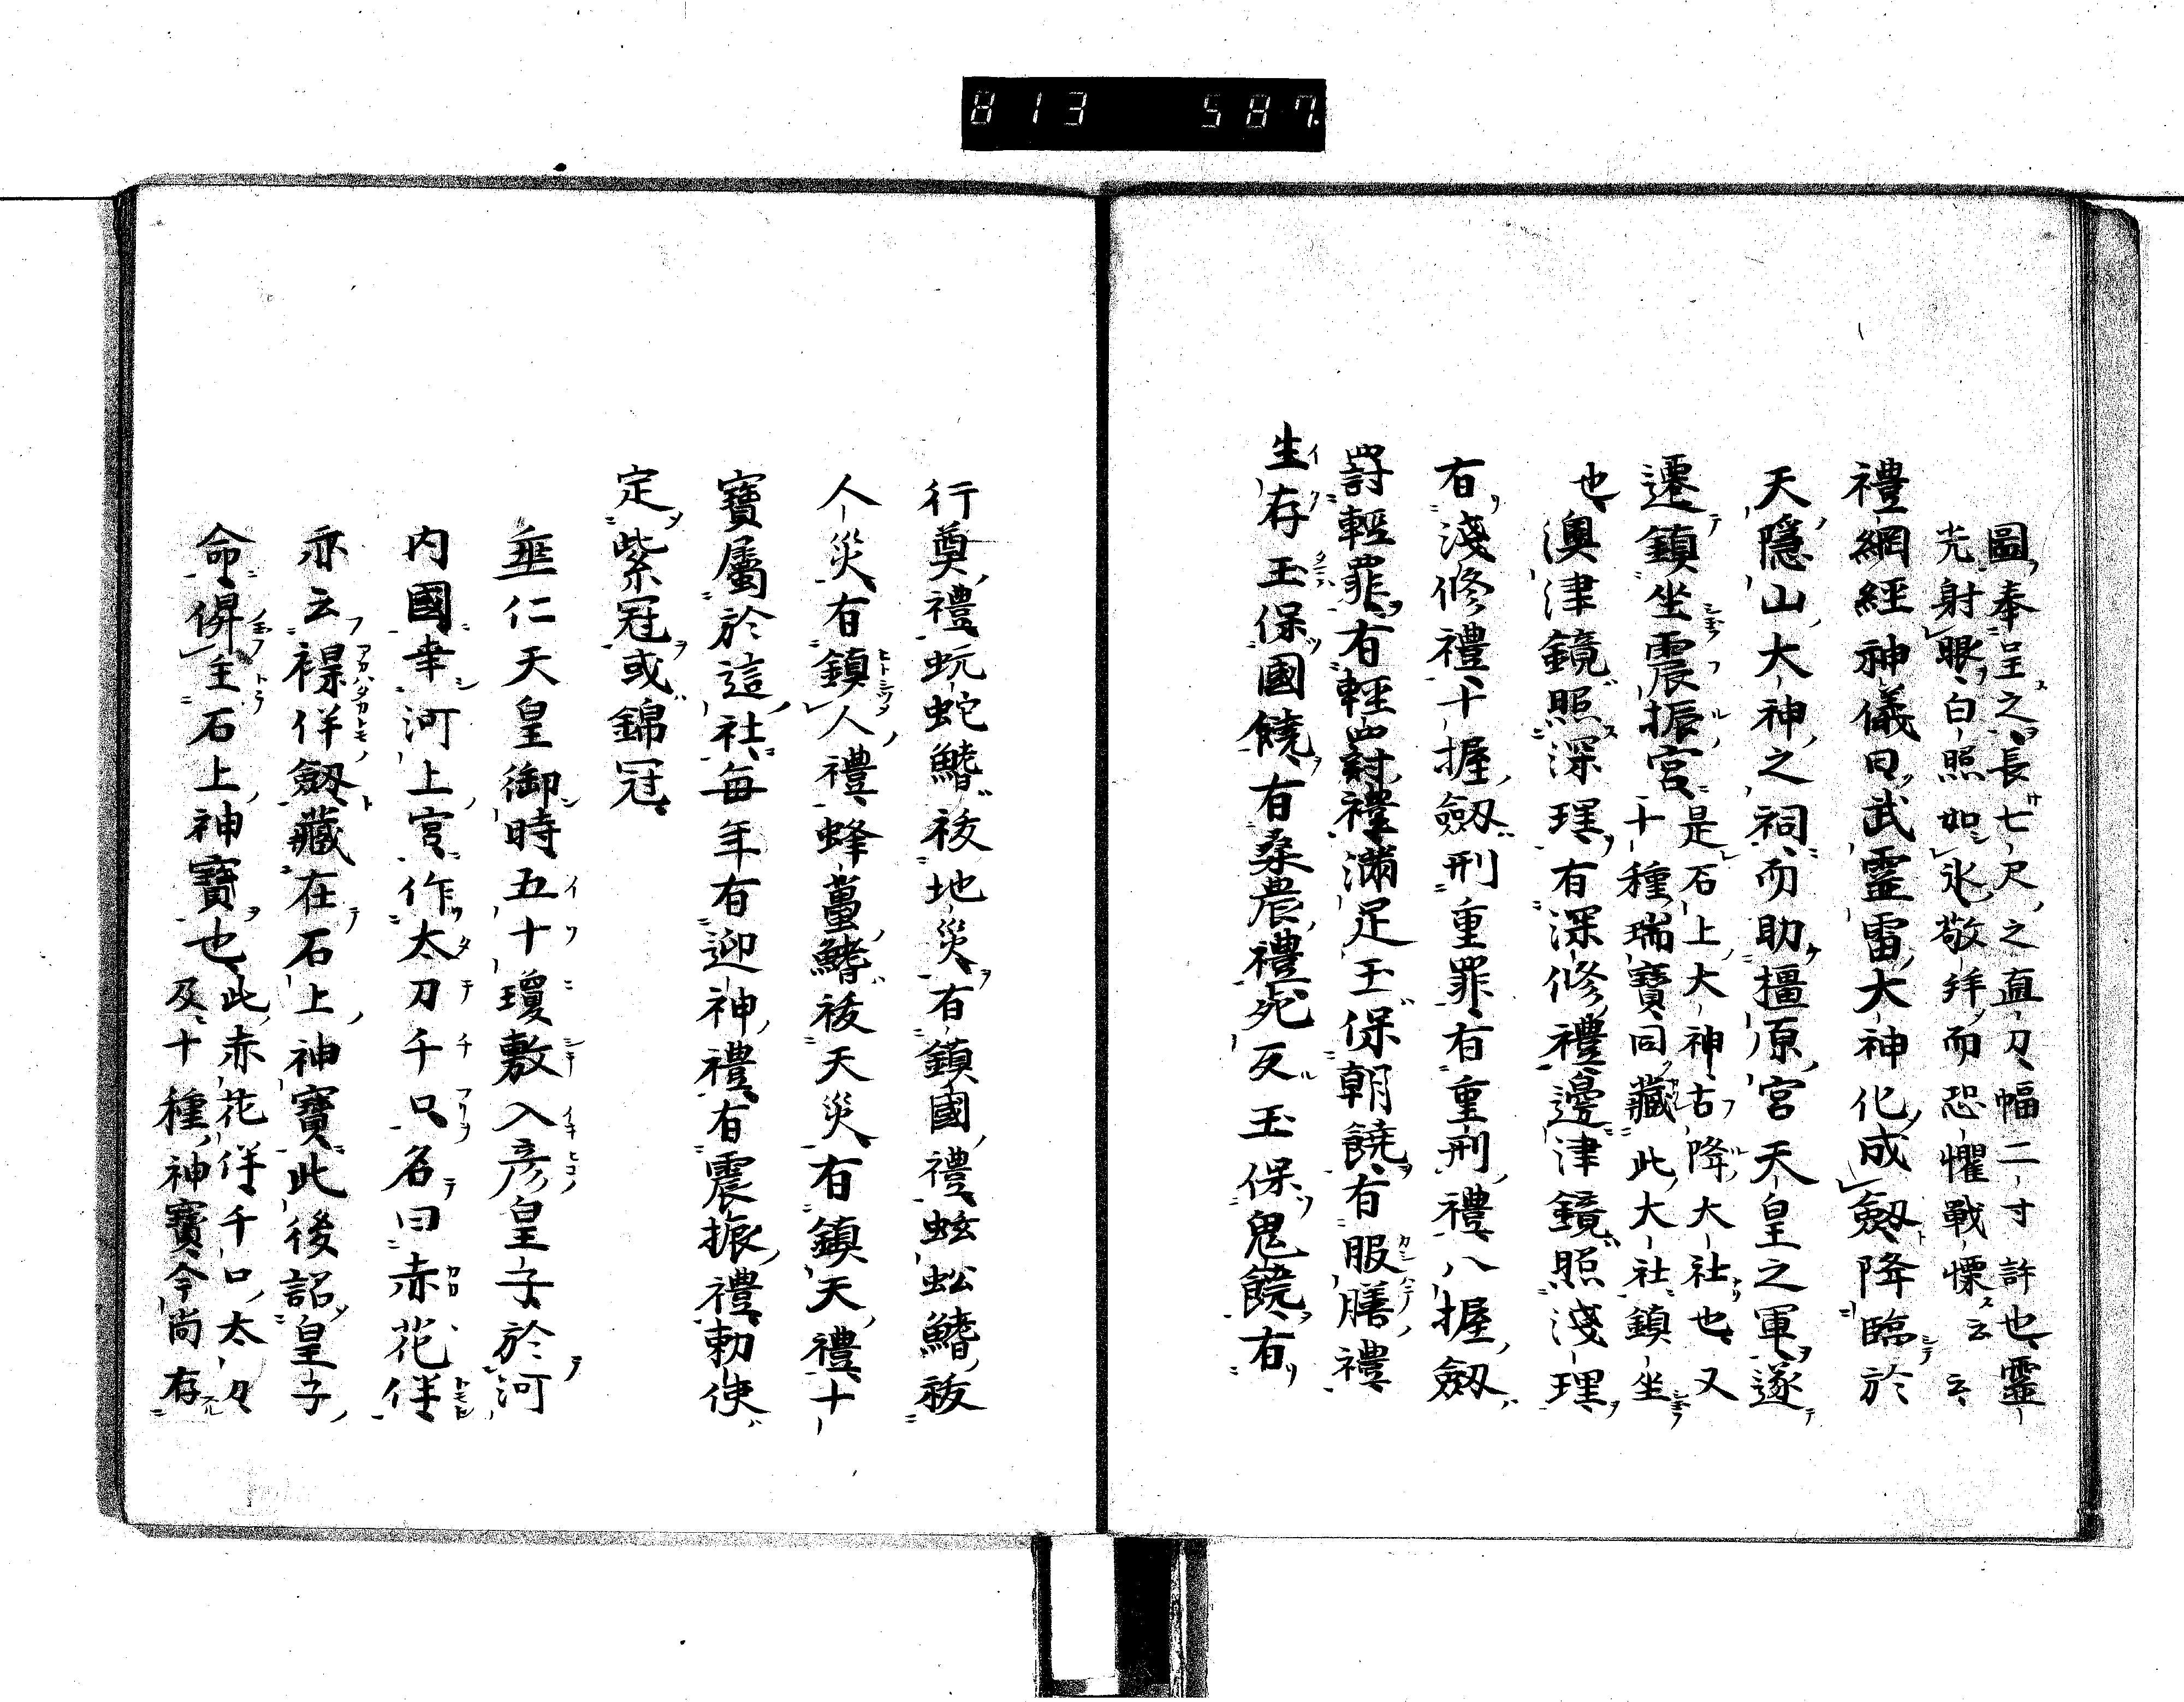 813 587.
圖奉呈之長七尺之直刀幅二寸許也靈
光射眼白照如氷敬拜而恐懼戰慄云云
禮綱經神儀曰武靈雷大神化成劔降臨於
天隱山大神之祠而助橿原宮天皇之軍遂
遷鎮坐震振宮是石上大神古降大社也又
十種瑞寶同藏此大社鎮坐
也澳津鏡照深理有深修禮邊津鏡照淺理
有淺修禮十握劔刑重罪有重刑禮八握劔
罸輕罪有輕罸禮滿足玉保朝饒有服膳禮
生存玉保國饒有桑農禮死反玉保鬼饒有
行奠禮蚖蛇鰭祓地災有鎮國禮蚣鰭祓
人災有鎮人禮蜂鰭祓天災有鎮天禮十
寶屬於這社每年有迎神禮有震振禮勅使
定紫冠或錦冠
垂仁天皇御時五十瓊敷入彦皇子於河
內國幸河上宮作太刀千口名曰赤花伴
亦云裸伴劔藏在石上神寶此後詔皇子
命俾主石上神寶也此赤花伴千口太刀
及十種神寶今尚存